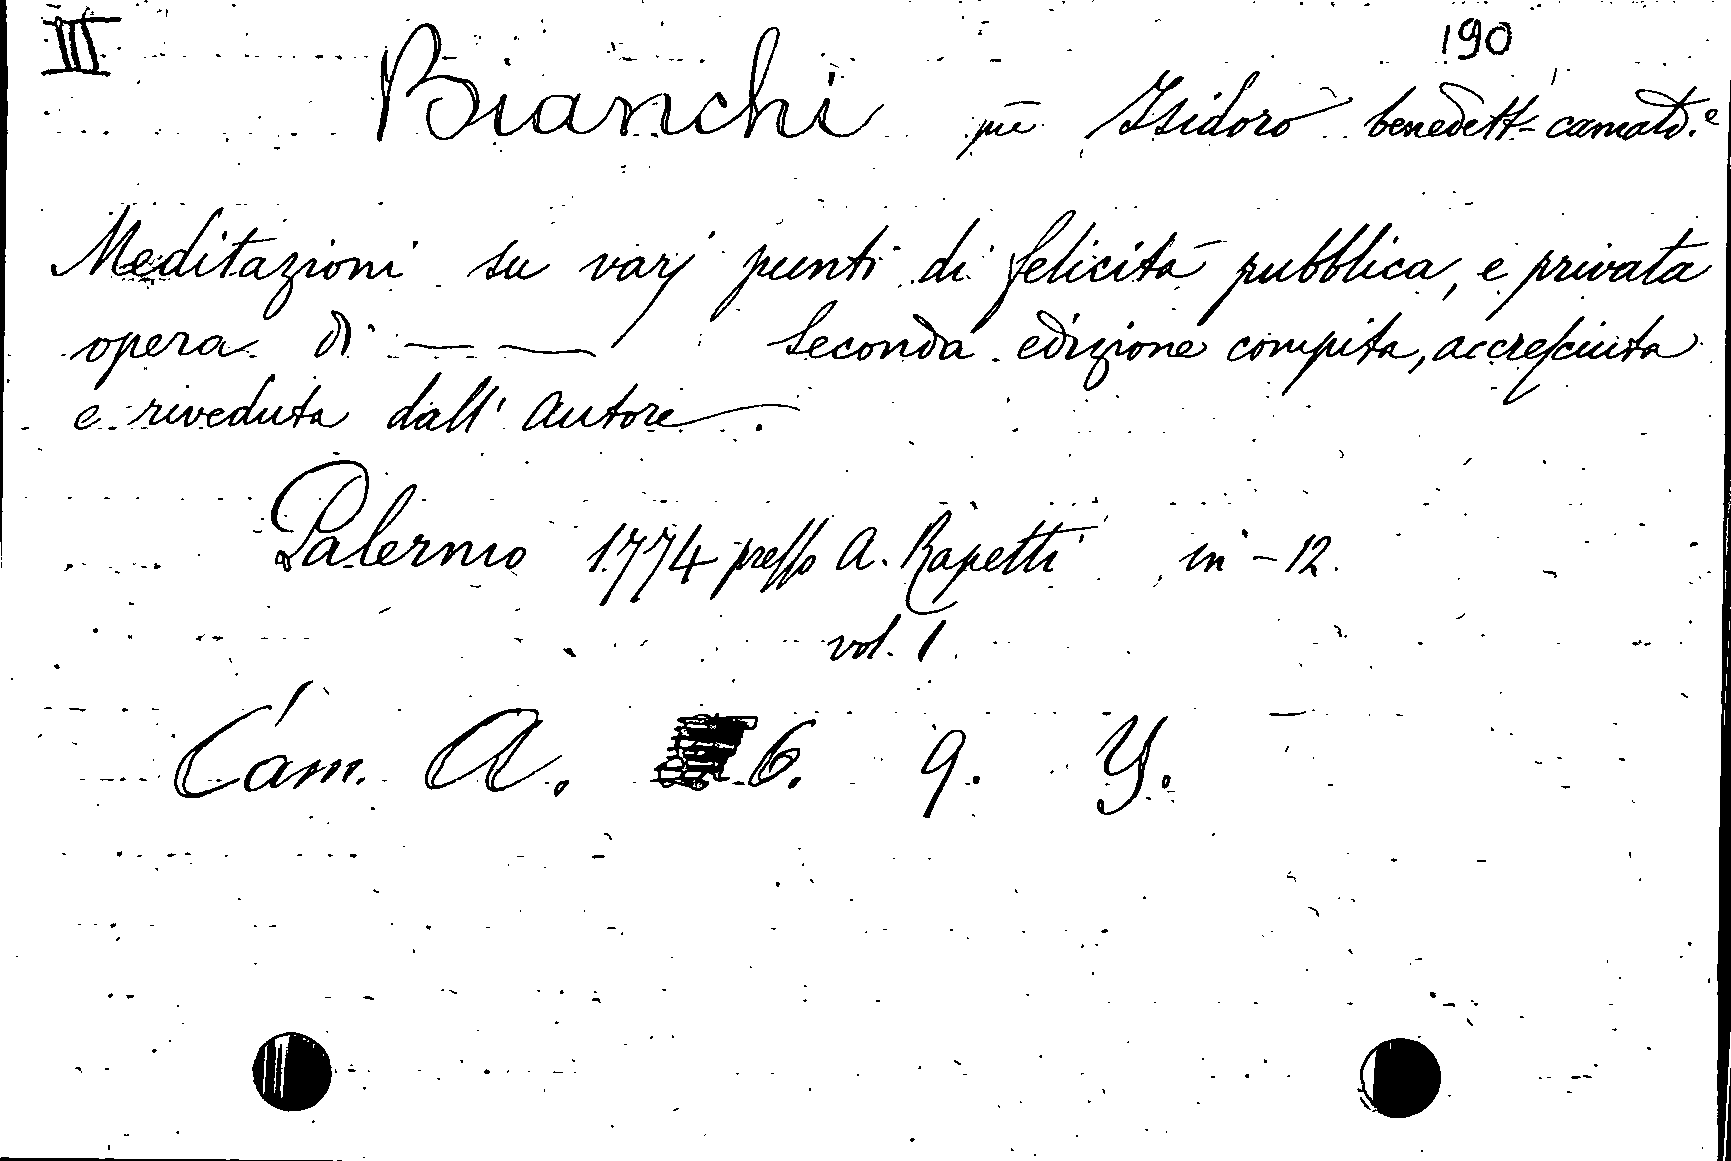 III 190
Bianchi pre Isidoro benedett-camald.e
Meditazioni su varj punti di felicità pubblica, e privata
opera di — — Seconda edizione compita, accresciuta
e riveduta dall'Autore.
Palermo 1774 presso A. Rapetti in-12.
vol. 1.
Cam. A. 6. 9. Y.